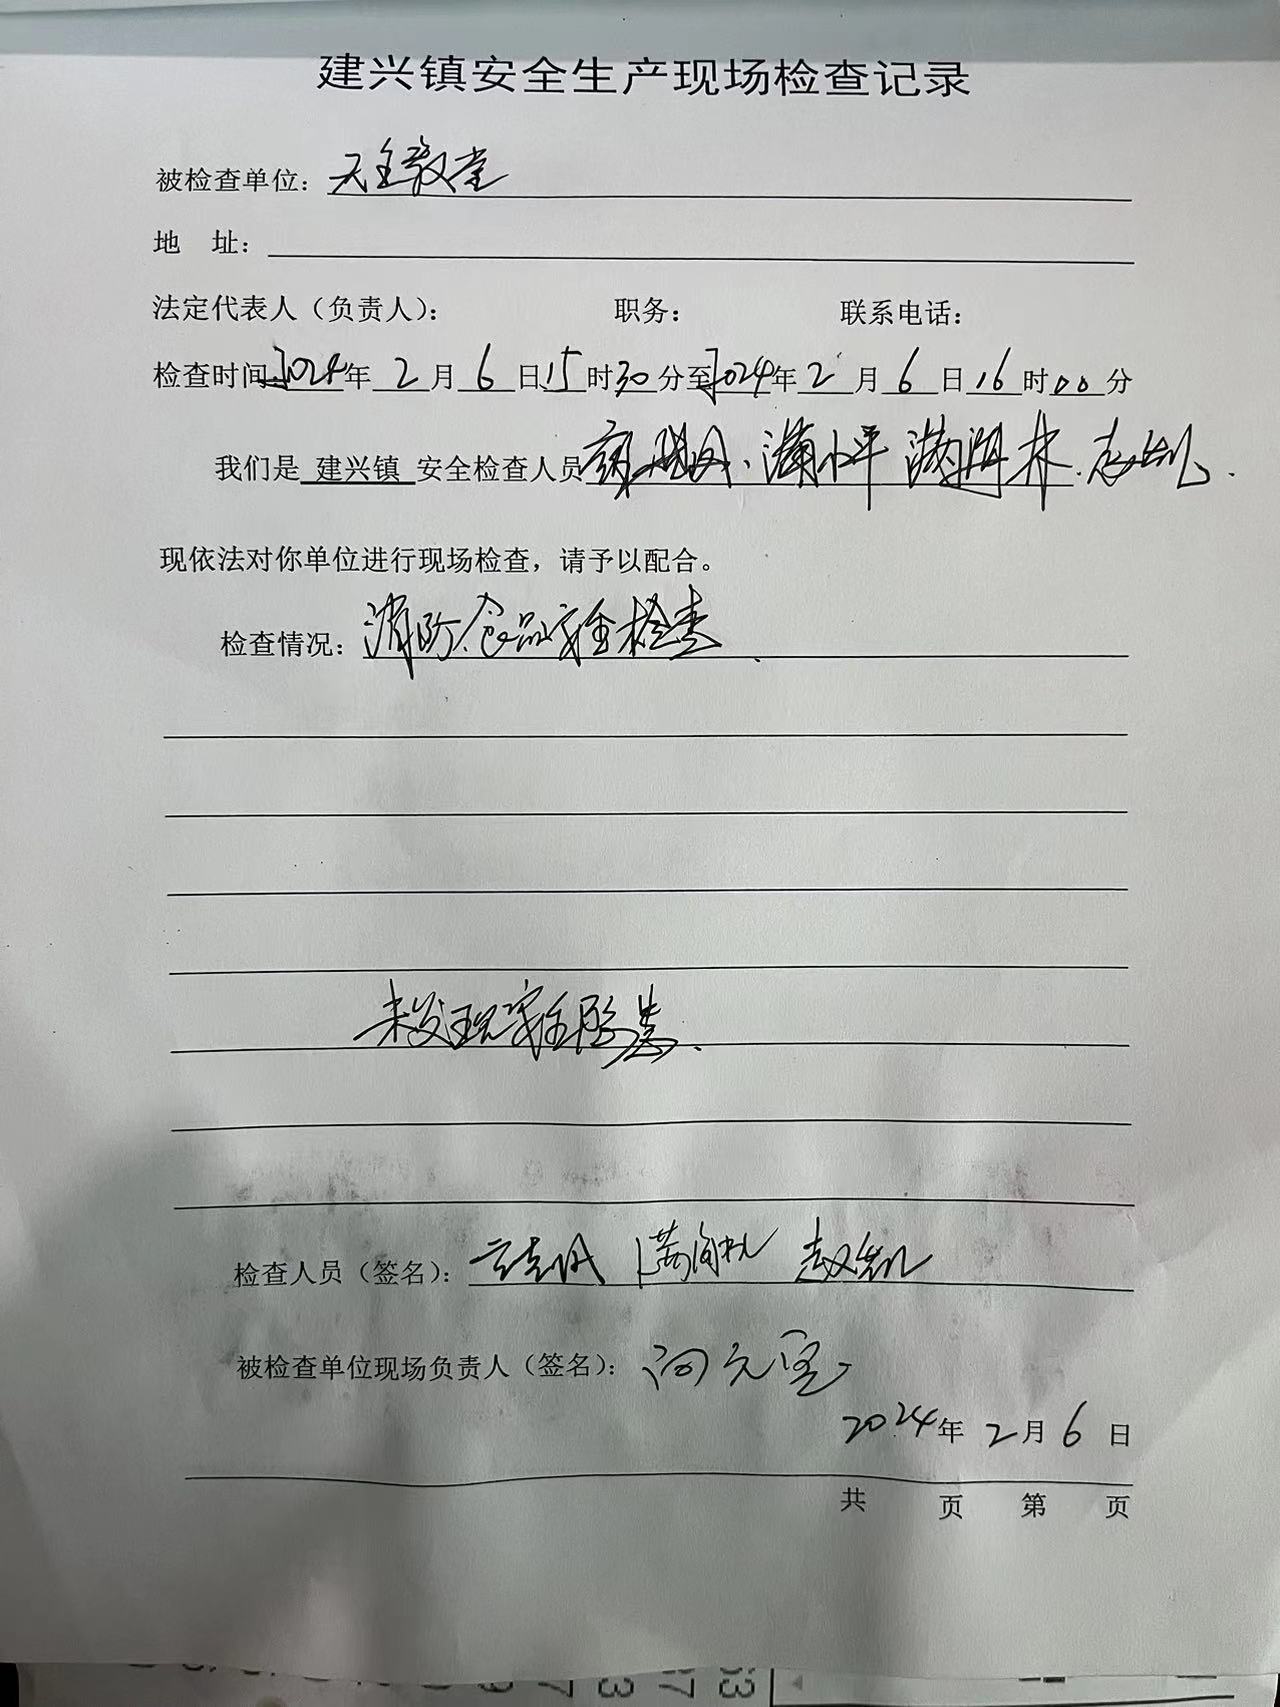 建兴镇安全生产现场检查记录
被检查单位：天主教堂
地 址：
法定代表人（负责人）： 职务： 联系电话：
检查时间：2024年2月6日15时30分至2024年2月6日16时00分
我们是 建兴镇 安全检查人员
现依法对你单位进行现场检查，请予以配合。
检查情况：消防、食品安全检查、
未发现安全隐患、
检查人员（签名）：
被检查单位现场负责人（签名）：
2024年2月6日
共 页 第 页